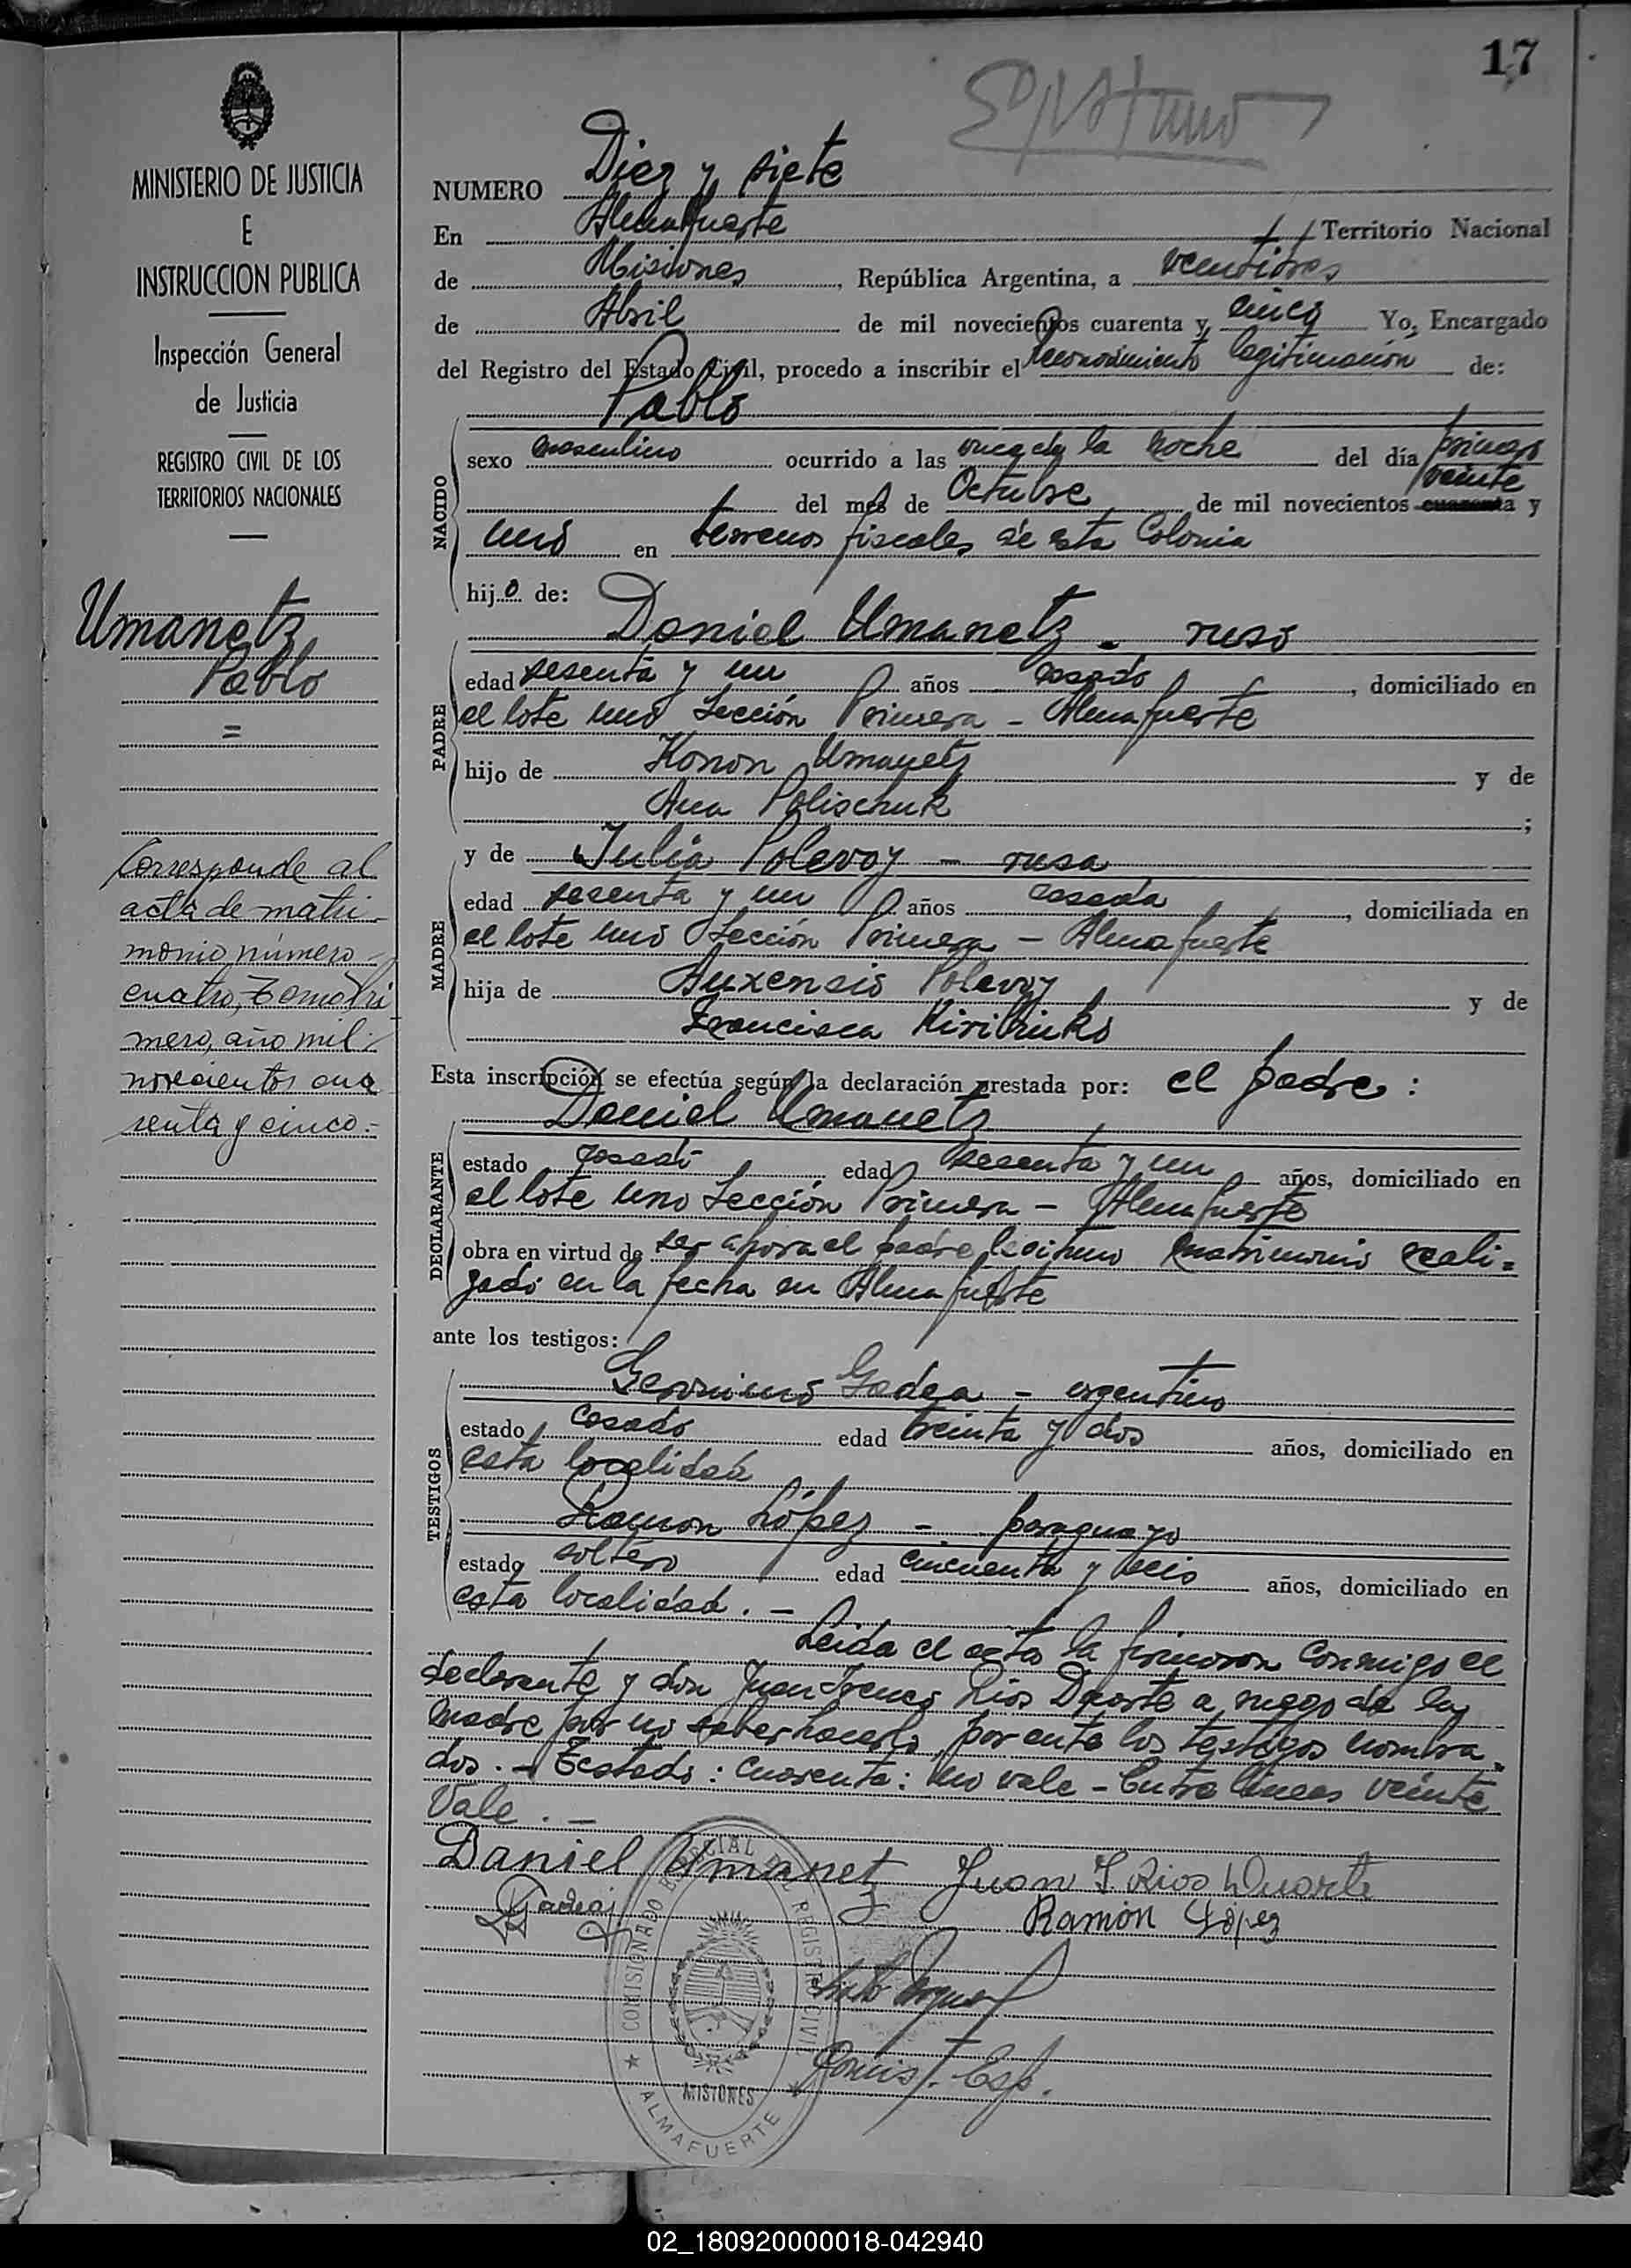 17
MINISTERIO DE JUSTICIA
E
INSTRUCCION PUBLICA
Inspección General
de Justicia
REGISTRO CIVIL DE LOS
TERRITORIOS NACIONALES
Umanetz
Pablo
=
Corresponde al
acta de matri-
monio número
cuatro, Tomo Pri
mero, año mil
novecientos cua
renta y cinco.-
NUMERO Diez y siete
En Almafuerte Territorio Nacional
de Misiones, República Argentina, a veintitres
de Abril de mil novecientos cuarenta y cinco Yo, Encargado
del Registro del Estado Civil, procedo a inscribir el Reconocimiento legitimación de:
Pablo
NACIDO
sexo masculino ocurrido a las once de la noche del día primero
veinte
del mes de Octubre de mil novecientos cuarenta y
uno en terrenos fiscales de esta Colonia
hijo de:
Daniel Umanetz - ruso
PADRE
edad sesenta y un años casado, domiciliado en
el lote uno Sección Primera - Almafuerte
hijo de Konon Umanetz y de
Ana Polischuk;
y de Julia Polevoy - rusa
MADRE
edad sesenta y un años casada, domiciliada en
el lote uno Sección Primera - Almafuerte
hija de Auxencio Polevoy y de
Francisca
Esta inscripción se efectúa según la declaración prestada por: el padre:
Daniel Umanetz
DECLARANTE
estado casado edad sesenta y un años, domiciliado en
el lote uno Sección Primera - Almafuerte
obra en virtud de ser ahora el padre legítimo matrimonio reali=
zado en la fecha en Almafuerte
ante los testigos:
TESTIGOS
Geronimo Gadea - argentino
estado casado edad treinta y dos años, domiciliado en
esta localidad
Ramon López - paraguayo
estado soltero edad cincuenta y seis años, domiciliado en
esta localidad. -
Leida el acta la firmaron conmigo el
declarante y don Juan Rios Duarte a ruego de la
madre por no saber hacerlo, por ante los testigos nombra-
dos. - Testado: cuarenta: no vale - Entre líneas veinte
Vale. -
Daniel Umanetz Juan F. Rios Duarte
Gadea Ramón López
Comis. Esp.
COMISIONADO ESPECIAL DEL REGISTRO CIVIL
MISIONES
ALMAFUERTE
02_180920000018-042940